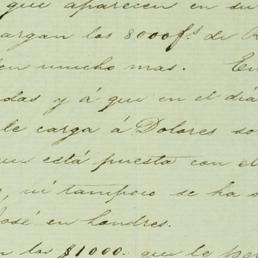 que aparecen en su
cargan los 8000 fs. de
mucho mas. En
das y á que en el diá
le carga á Dolores so
está puesta con el
, ni tampoco se ha
José en Londres.
los $1000. que le